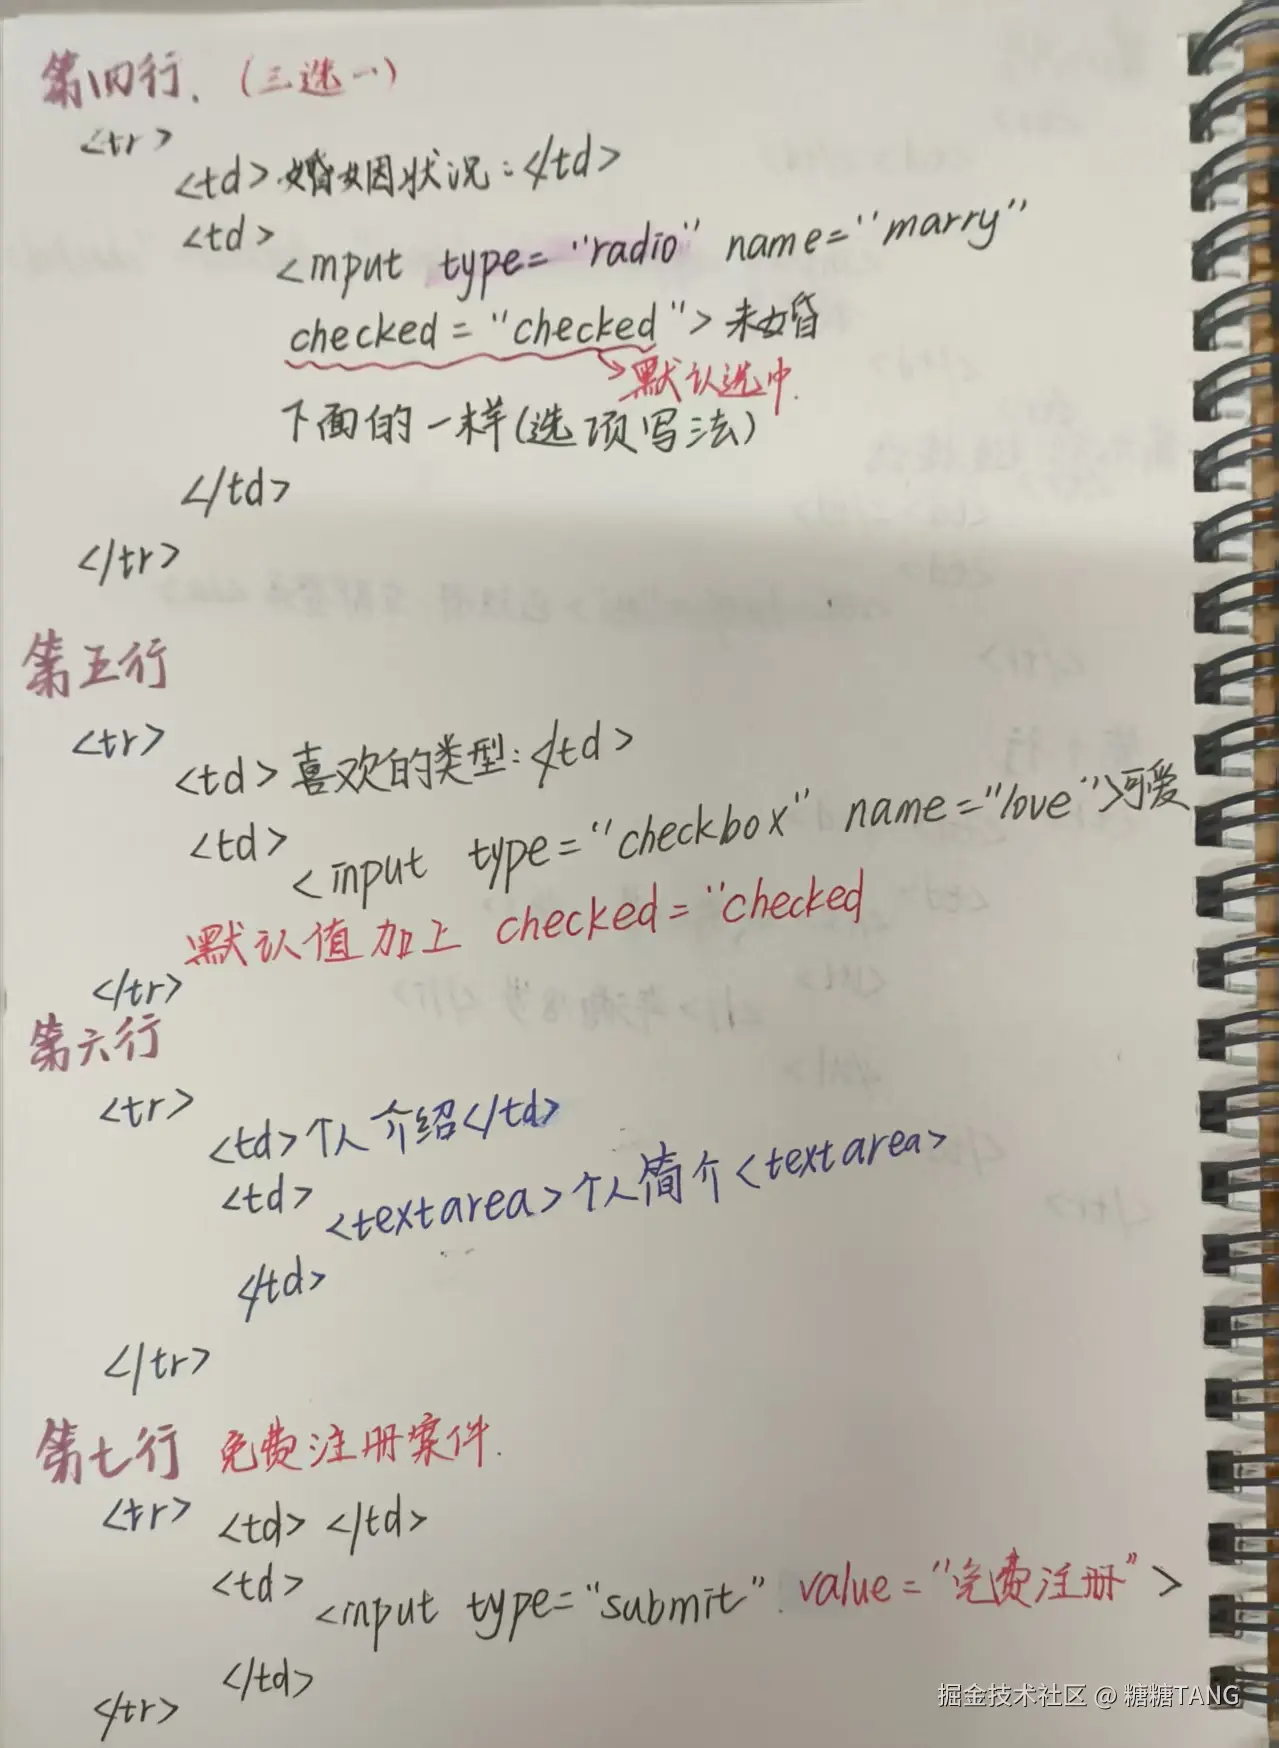 第四行. (三选一)
<tr>
<td>婚姻状况:</td>
<td>
<input type="radio" name="marry"
checked="checked">未婚
默认选中.
下面的一样(选项写法)
</td>
</tr>
第五行
<tr>
<td>喜欢的类型:</td>
<td>
<input type="checkbox" name="love">可爱
默认值加上 checked="checked
</tr>
第六行
<tr>
<td>个人介绍</td>
<td>
<textarea>个人简介<textarea>
</td>
</tr>
第七行 免费注册案件.
<tr>
<td></td>
<td>
<input type="submit" value="免费注册">
</td>
</tr>
掘金技术社区 @ 糖糖TANG